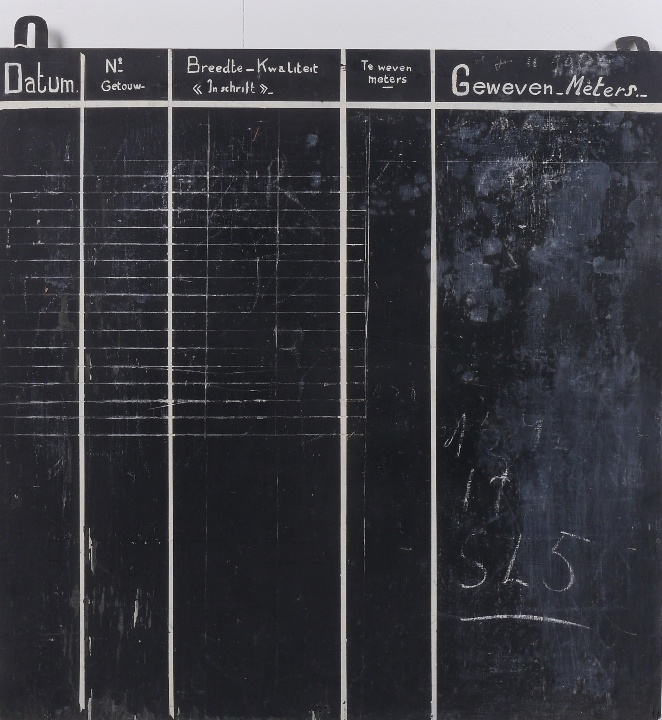 Datum.
Nº
Getouw-
Breedte - Kwaliteit
« Inschrift »-
Te weven
meters
Geweven - Meters.-
17
SL5